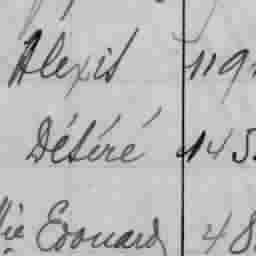 Alexis 119
Déséré 145
Edouard 48